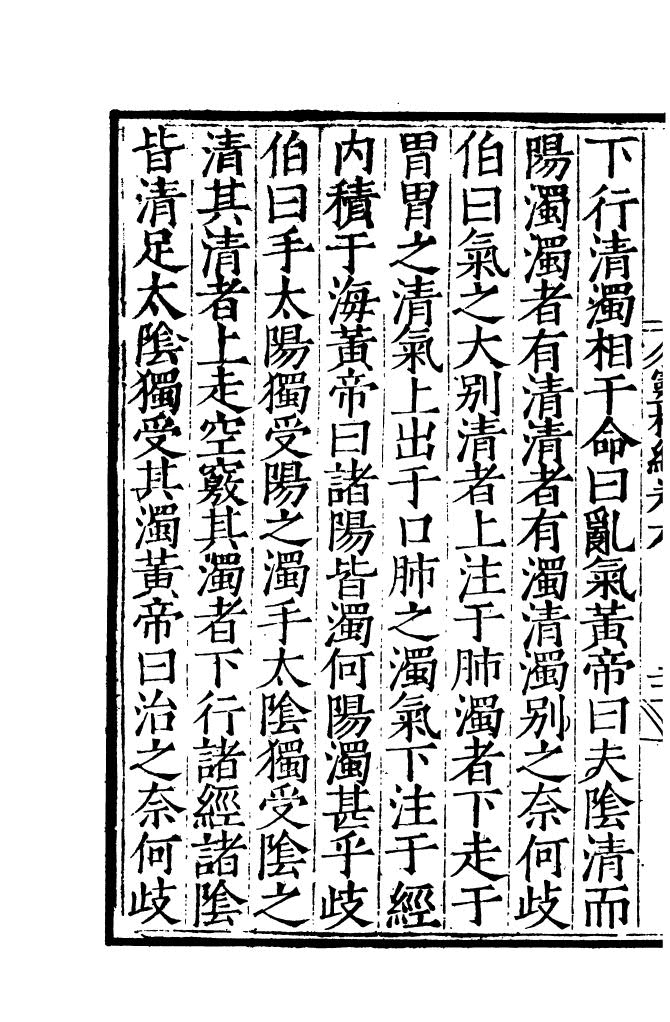 下行清濁相干命曰亂氣黃帝曰夫陰清而
陽濁濁者有清清者有濁清濁别之奈何歧
伯曰氣之大别清者上注于肺濁者下走于
胃胃之清氣上出于口肺之濁氣下注于經
内積于海黃帝曰諸陽皆濁何陽濁甚乎歧
伯曰手太陽獨受陽之濁手太陰獨受陰之
清其清者上走空竅其濁者下行諸經諸陰
皆清足太陰獨受其濁黃帝曰治之奈何歧